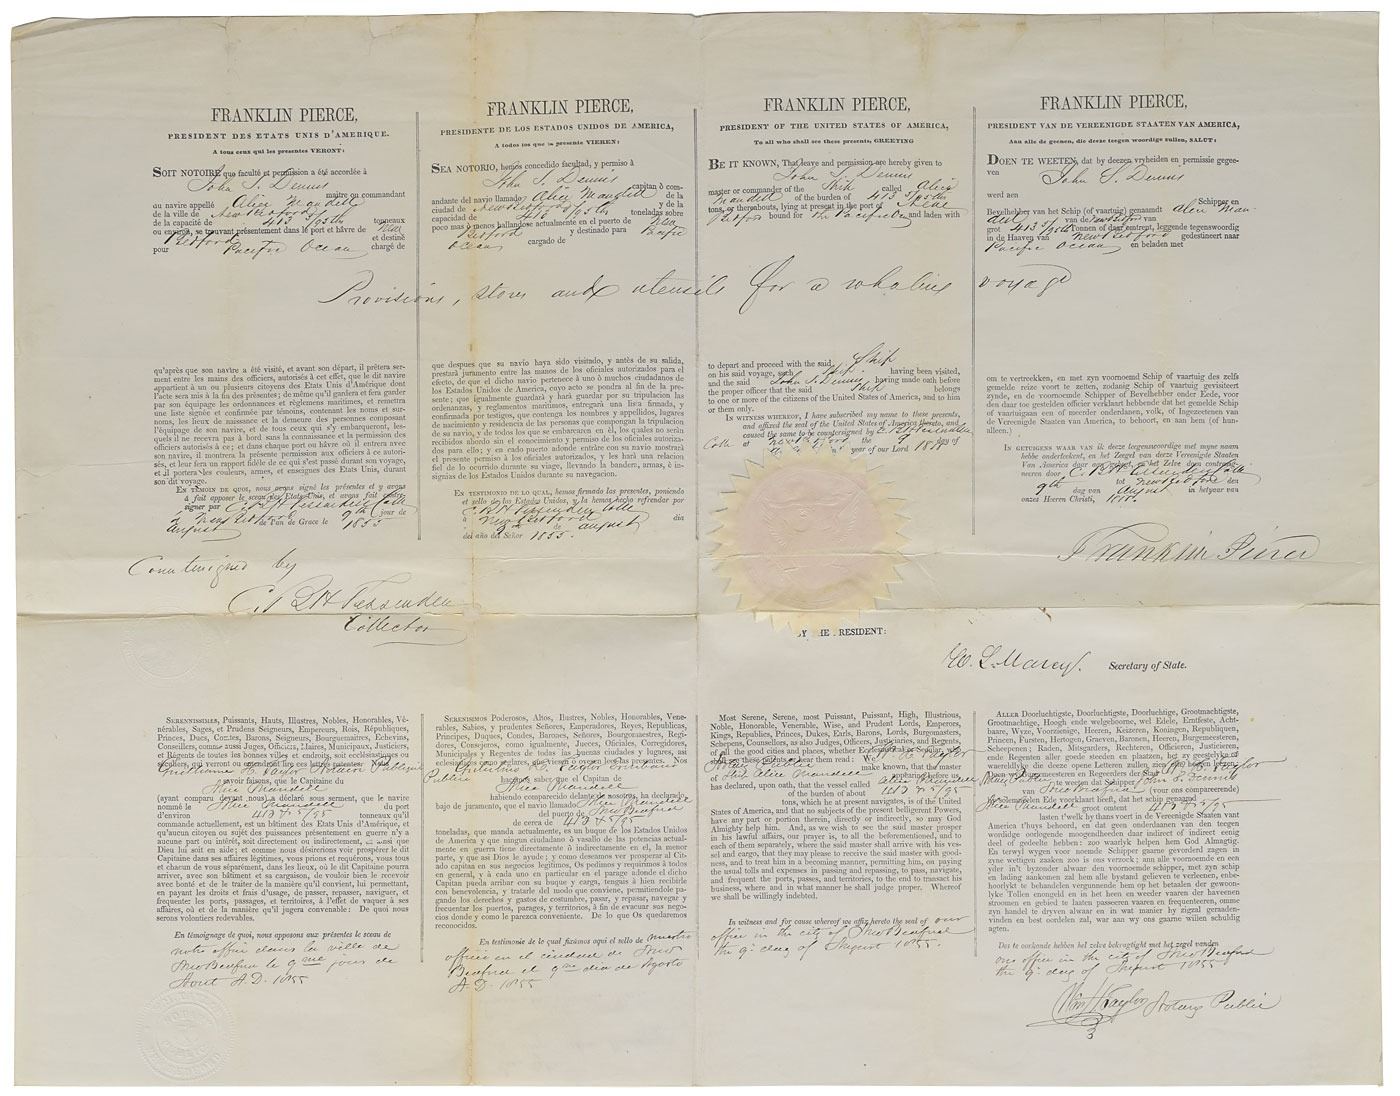 FRANKLIN PIERCE,
PRESIDENT DES ETATS UNIS D'AMERIQUE.
A tous ceux qui les presentes VERONT:
SOIT NOTOIRE que faculté et permission a été accordée à
John S. Dennis
maitre ou commandant
au navire appelé Alice Mandell
de la ville de New Bedford
de la capacité de 413 5/95th tonneaux
ou environ, se trouvant présentement dans le port et hâvre de New
Bedford et destiné
pour Pacific Ocean chargé de
FRANKLIN PIERCE,
PRESIDENTE DE LOS ESTADOS UNIDOS DE AMERICA,
A todos los que la presente VIEREN:
SEA NOTORIO, hemos concedido facultad, y permiso à
John S. Dennis
capitan ò com-
andante del navio llamado Alice Mandell de la
ciudad de New Bedford y de la
capacidad de 413 5/95th toneladas sobre
poco mas ò menos hallandose actualmente en el puerto de New
Bedford y destinado para Pacific
Ocean cargado de
FRANKLIN PIERCE,
PRESIDENT OF THE UNITED STATES OF AMERICA,
To all who shall see these presents, GREETING
BE IT KNOWN, That leave and permission are hereby given to
John S. Dennis
master or commander of the Ship called Alice
Mandell of the burden of 413 5/95ths
tons, or thereabouts, lying at present in the port of New
Bedford bound for the Pacific Ocn and laden with
FRANKLIN PIERCE,
PRESIDENT VAN DE VEREENIGDE STAATEN VAN AMERICA,
Aan alle de geenen, die deeze tegen woordige zullen, SALUT:
DOEN TE WEETEN, dat by deezen vryheiden en permissie gegee-
ven John S. Dennis
werd aen
Schipper en
Bevelhebber van het Schip (of vaartuig) genaamdt Alice Man-
dell van de New Bedford van
grot 413 5/95th Tonnen of daar omtrent, leggende tegenswoordig
in de Haaven van New Bedford gedestineert naar
Pacific Ocean en beladen met
Provisions, stores and utensils for a whaling voyage
qu'après que son navire a été visité, et avant son départ, il prêtera ser-
ment entre les mains des officiers, autorisés à cet effet, que le dit navire
appartient à un ou plusieurs citoyens des Etats Unis d'Amérique dont
l'acte sera mis à la fin des présentes; de même qu'il gardera et fera garder
par son équipage les ordonnances et règlemens maritimes, et remettra
une liste signée et confirmée par témoins, contenant les noms et sur-
noms, les lieux de naissance et la demeure des personnes composant
l'équipage de son navire, et de tous ceux qui s'y embarqueront, les-
quels il ne recevra pas à bord sans la connaissance et la permission des
officiers autorisés à ce; et dans chaque port ou hâvre où il entrera avec
son navire, il montrera la présente permission aux officiers à ce autori-
sés, et leur fera un rapport fidèle de ce qui s'est passé durant son voyage,
et il portera les couleurs, armes, et enseignes des Etats Unis, durant
son dit voyage.
EN TÉMOIN DE QUOI, nous avons signé les présentes et y avons
à fait apposer le sceau des Etats Unis, et avons fait contre-
signer par C. B. H. Fessenden Coll
à New Bedford le 9th jour de
August de l'an de Grace le 1855
que despues que su navio haya sido visitado, y antès de su salida,
prestará juramento entre las manos de los oficiales autorizados para el
efecto, de que el dicho navio pertenece à uno ò muchos ciudadanos de
los Estados Unidos de America, cuyo acto se pendra al fin de la pre-
sente; que igualmente guardará y hará guardar por su tripulacion las
ordenanzas, y reglamentos maritimos, entregará una lista firmada, y
confirmada por testigos, que contenga los nombres y appellidos, lugares
de nacimiento y residencia de las personas que compongan la tripulacion
de su navio, y de todos los que se embarcaren en él, los quales no serán
recibidos abordo sin el conocimiento y permiso de los oficiales autoriza-
dos para ello; y en cada puerto adonde entráre con su navio mostrará
el presente permiso à los oficiales autorizados, y les hará una relacion
fiel de lo ocurrido durante su viage, llevando la bandera, armas, è in-
signias de los Estados Unidos durante su navegacion.
EN TESTIMONIO DE LO QUAL, hemos firmado las presentes, poniendo
el sello de los Estados Unidos, y la hemos hecho refrendar por
C. B. H. Fessenden Colle
à New Bedford dia
9th de August
del año del Señor 1855.
to depart and proceed with the said Ship
on his said voyage, such Ship having been visited,
and the said John S. Dennis having made oath before
the proper officer that the said Ship belongs
to one or more of the citizens of the United States of America, and to him
or them only.
IN WITNESS WHEREOF, I have subscribed my name to these presents,
and affixed the seal of the United States of America thereto, and
caused the same to be countersigned by C. B. H. Fessenden
Coll at New Bedford the 9 day of
year of our Lord 1855
om te vertrecken, en met zyn voornoemd Schip of vaartuig des zelfs
gemelde reize voort te zetten, zodanig Schip of vaartuig gevisiteert
zynde, en de voornoemde Schipper of Bevelhebber onder Eede, voor
den daar toe gestelden officier verklart hebbende dat het gemelde Schip
of vaartuigaan een of meerder onderdanen, volk, of Ingezeetenen van
America, to behoort, en aan hem (of hun-
alleen.)
IN GETUIGENS WAAR VAN ik deeze tegenswoordige met myne naam
hebbe onderteekent, en het Zeegel van deeze Vereenigde Staaten
Van America daar aan gehegt, en het Zelve doen contrasig-
neeren door C. B. H. Fessenden Colle
tot New Bedford den
9th dag van August in het jaar van
onzes Heeren Christi, 1855.
Franklin Pierce
Countersigned by
C. B. H. Fessenden
Collector
BY THE PRESIDENT:
W. L. Marcy. Secretary of State.
SERENNISSIMES, Puissants, Hauts, Illustres, Nobles, Honorables, Vé-
nérables, Sages, et Prudents Seigneurs, Empereurs, Rois, Républiques,
Princes, Ducs, Comtes, Barons, Seigneurs, Bourguemaitres, Echevins,
Conseillers, comme aussi Juges, Officiers, Maires, Municipaux, Justiciers,
et Régents de toutes les bonnes villes et endroits, soit ecclésiastiques ou
séculiers, qui verront ou entendront lire ces lettres patentes. Nous
Guillaume H. Taylor Notaire Publique
savoir faisons, que le Capitaine du
Alice Mandell
(ayant comparu devant nous) a déclaré sous serment, que le navire
nommé le Alice Mandell du port
d'environ 413 & 5/95 tonneaux qu'il
commande actuellement, est un bâtiment des Etats Unis d'Amérique, et
qu'aucun citoyen ou sujet des puissances présentement en guerre n'y a
aucune part ou intérêt, soit directement ou indirectement, ainsi que
Dieu lui soit en aide; et comme nous désirerions voir prospérer le dit
Capitaine dans ses affaires légitimes, vous prions et requérons, vous tous
et chacun de vous séparément, dans les lieux, où le dit Capitaine pourra
arriver, avec son bâtiment et sa cargaison, de vouloir bien le recevoir
avec bonté et de le traiter de la manière qu'il convient, lui permettant,
en payant les droits et frais d'usage, de passer, repasser, naviguer, et
fréquenter les ports, passages, et territoires, à l'effet de vaquer à ses
affaires, où et de la manière qu'il jugera convenable: De quoi nous
serons volontiers redevables.
En témoignage de quoi, nous apposons aux présentes le sceau de
notre office dans la ville de
New Bedford le 9me jour de
Aout A.D. 1855
SERENISIMOS Poderosos, Altos, Ilustres, Nobles, Honorables, Vene-
rables, Sabios, y prudentes Señores, Emperadores, Reyes, Republicas,
Principes, Duques, Condes, Barones, Señores, Bourgomaestres, Regi-
dores, Consejeros, como igualmente, Jueces, Oficiales, Corregidores,
Municipales y Regentes de todas las buenas ciudades y lugares, asi
eclesiasticos como seglares, que vieren ò oyesen leer las presentes. Nos
Guilielmo H. Taylor
Publico hacemos saber, que el Capitan de
Alice Mandell
habiendo comparecido delante de nosotros, ha declarado,
bajo de juramento, que el navio llamado Alice Mandell
del puerto de New Bedford
de cerca de 413 & 5/95
toneladas, que manda actualmente, es un buque de los Estados Unidos
de America y que ninguno ciudadano ò vasallo de las potencias actual-
mente en guerra tiene directamente ò indirectamente en él, la menor
parte, y que asi Dios le ayude; y como deseamos ver prosperar al Cit-
ado capitan en sus negocios legitimos, Os pedimos y requirimos à todos
en general, y à cada uno en particular en el parage adonde el dicho
Capitan pueda arribar con su buque y carga, tengais à bien recibirle
con benevolencia, y tratarle del modo que conviene, permitiendole pa-
gando los derechos y gastos de costumbre, pasar, y repasar, navegar y
frecuentar los puertos, parages, y territorios, à fin de evacuar sus nego-
cios donde y como le parezca conveniente. De lo que Os quedaremos
reconocidos.
En testimonio de lo qual fixamos aqui el sello de nuestro
officio en el ciudad de New
Bedford el 9me dia de Agosto
A.D. 1855
Most Serene, Serene, most Puissant, Puissant, High, Illustrious,
Noble, Honorable, Venerable, Wise, and Prudent Lords, Emperors,
Kings, Republics, Princes, Dukes, Earls, Barons, Lords, Burgomasters,
Schepens, Counsellors, as also Judges, Officers, Justiciaries, and Regents
of all the good cities and places, whether Ecclesiastical or Secular, who
shall see these patents or hear them read: We, Wm H. Taylor
Notary Public make known, that the master
of Ship Alice Mandell appearing before us,
has declared, upon oath, that the vessel called Alice Mandell
of the burden of about 413 & 5/95
tons, which he at present navigates, is of the United
States of America, and that no subjects of the present belligerent Powers,
have any part or portion therein, directly or indirectly, so may God
Almighty help him. And, as we wish to see the said master prosper
in his lawful affairs, our prayer is, to all the beforementioned, and to
each of them separately, where the said master shall arrive with his ves-
sel and cargo, that they may please to receive the said master with good-
ness, and to treat him in a becoming manner, permitting him, on paying
the usual tolls and expenses in passing and repassing, to pass, navigate,
and frequent the ports, passes, and territories, to the end to transact his
business, where and in what manner he shall judge proper. Whereof
we shall be willingly indebted.
In witness and for cause whereof we affix hereto the seal of our
office in the city of New Bedford
the 9th day of August 1855.
ALLER Doorluchtigste, Doorluchtigste, Doorluchtige, Grootmachtigste,
Grootmachtige, Hoogh ende welgeboorne, wel Edele, Erntfeste, Acht-
baare, Wyze, Voorzienige, Heeren, Keizeren, Koningen, Republiquen,
Princen, Fursten, Hertogen, Graeven, Baronen, Heeren, Burgemeesteren,
Scheepenen; Raden, Mitsgarders, Rechteren, Officieren, Justicieren,
ende Regenten, aller goede steeden en plaatsen, het zy geestelyke of
wereldlyke die deeze opene Letteren zullen zien ofte hooren leezen.
Doen wy Burgemeesteren en Regeerders der Stad Wm H. Taylor
Notary Public te weeten dat Schipper John S. Dennis
van New Bedford (voor ons compareerende)
by solemneelen Ede voorcklaart heeft, dat het schip genaamd
Alice Mandell groot omtent 413 & 5/95
lasten t'welk hy thans voert in de Vereenigde Staaten vant
America t'huys behoord, en dat geen onderdaanen van den tegen
woordige oorlogende moogendheeden daar indirect of indirect eenig
deel of gedeelte hebben: zoo waarlyk helpen hem God Almagtig.
En terwyl wygen voor noemde Schipper gaarne gevorderd zagen in
zyne wettigen zaaken zoo is ons verzoek; aan alle voornoemde en een
yder in't byzonder alwaar den voornoemde schipper, met zyn schip
en lading aankoomen zal hem alle bystand gelieven te verleenen, enbe-
hoorlykt te behandelen vergunnende hem op het betaalen der gewoon-
lyke Tollen enongeld en in het heen en weeder vaaren der haveenen
stroomen en gebied te laaten passeeren vaaren en frequenteeren, omme
zyn handel te dryven alwaar en in wat manier hy zigzal geraaden-
vinden en best oordelen zal, war aan wy ons gaarne willen schuldig
agten.
Des te oorkonde hebben het zelve bekragtight met het zegel vanden
ons office in the city of New Bedford
the 9th day of August 1855
Wm H Taylor Notary Public